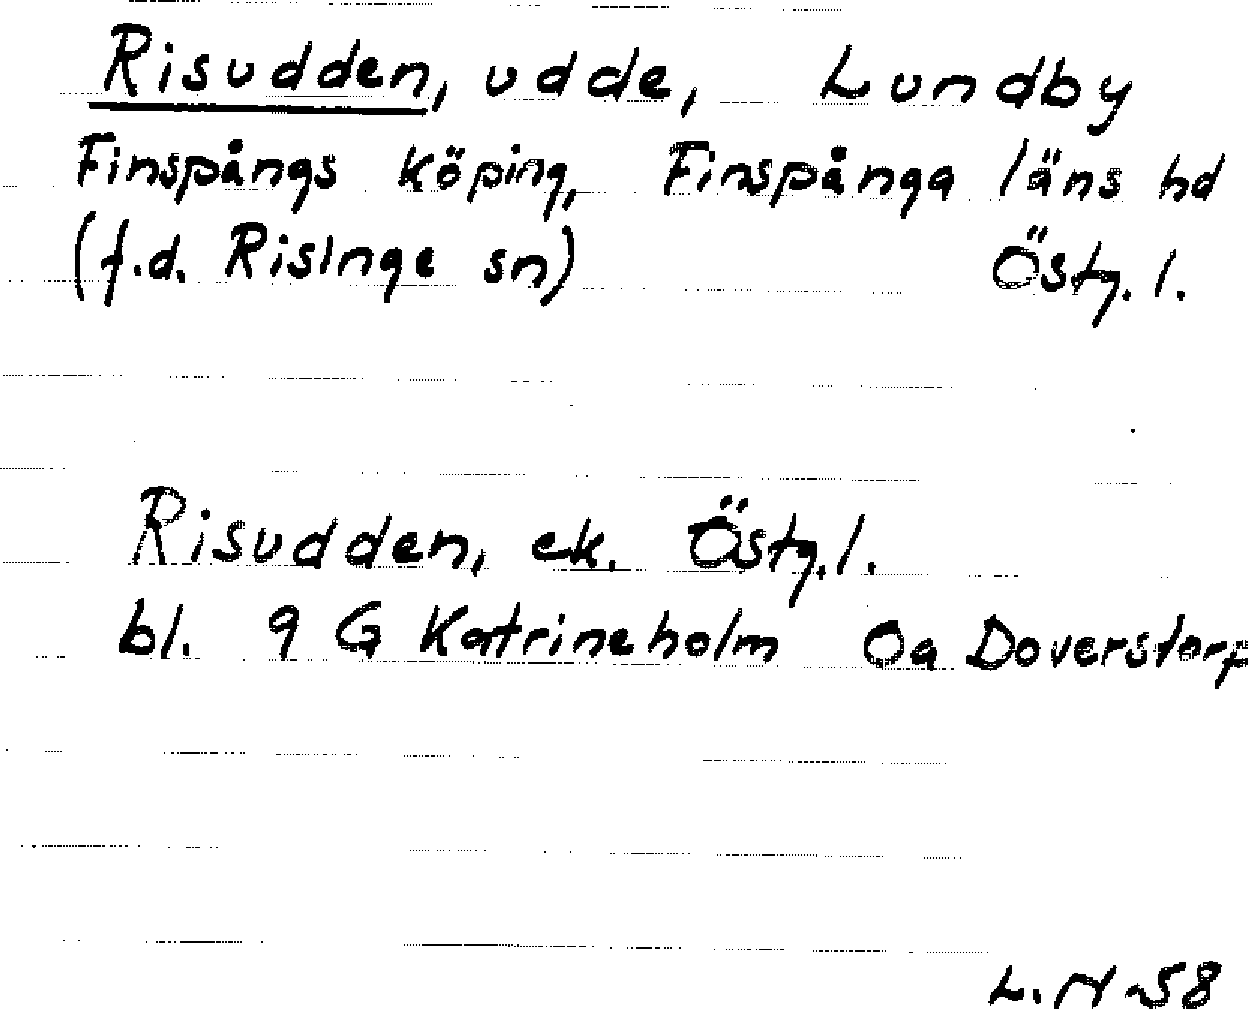 Risudden, udde, Lundby
Finspångs köping, Finspånga läns hd
(f.d. Risinge sn) Östg.l.
Risudden, ek. Östg.l.
bl. 9 G Katrineholm 0a Doverstorp
L. N-58